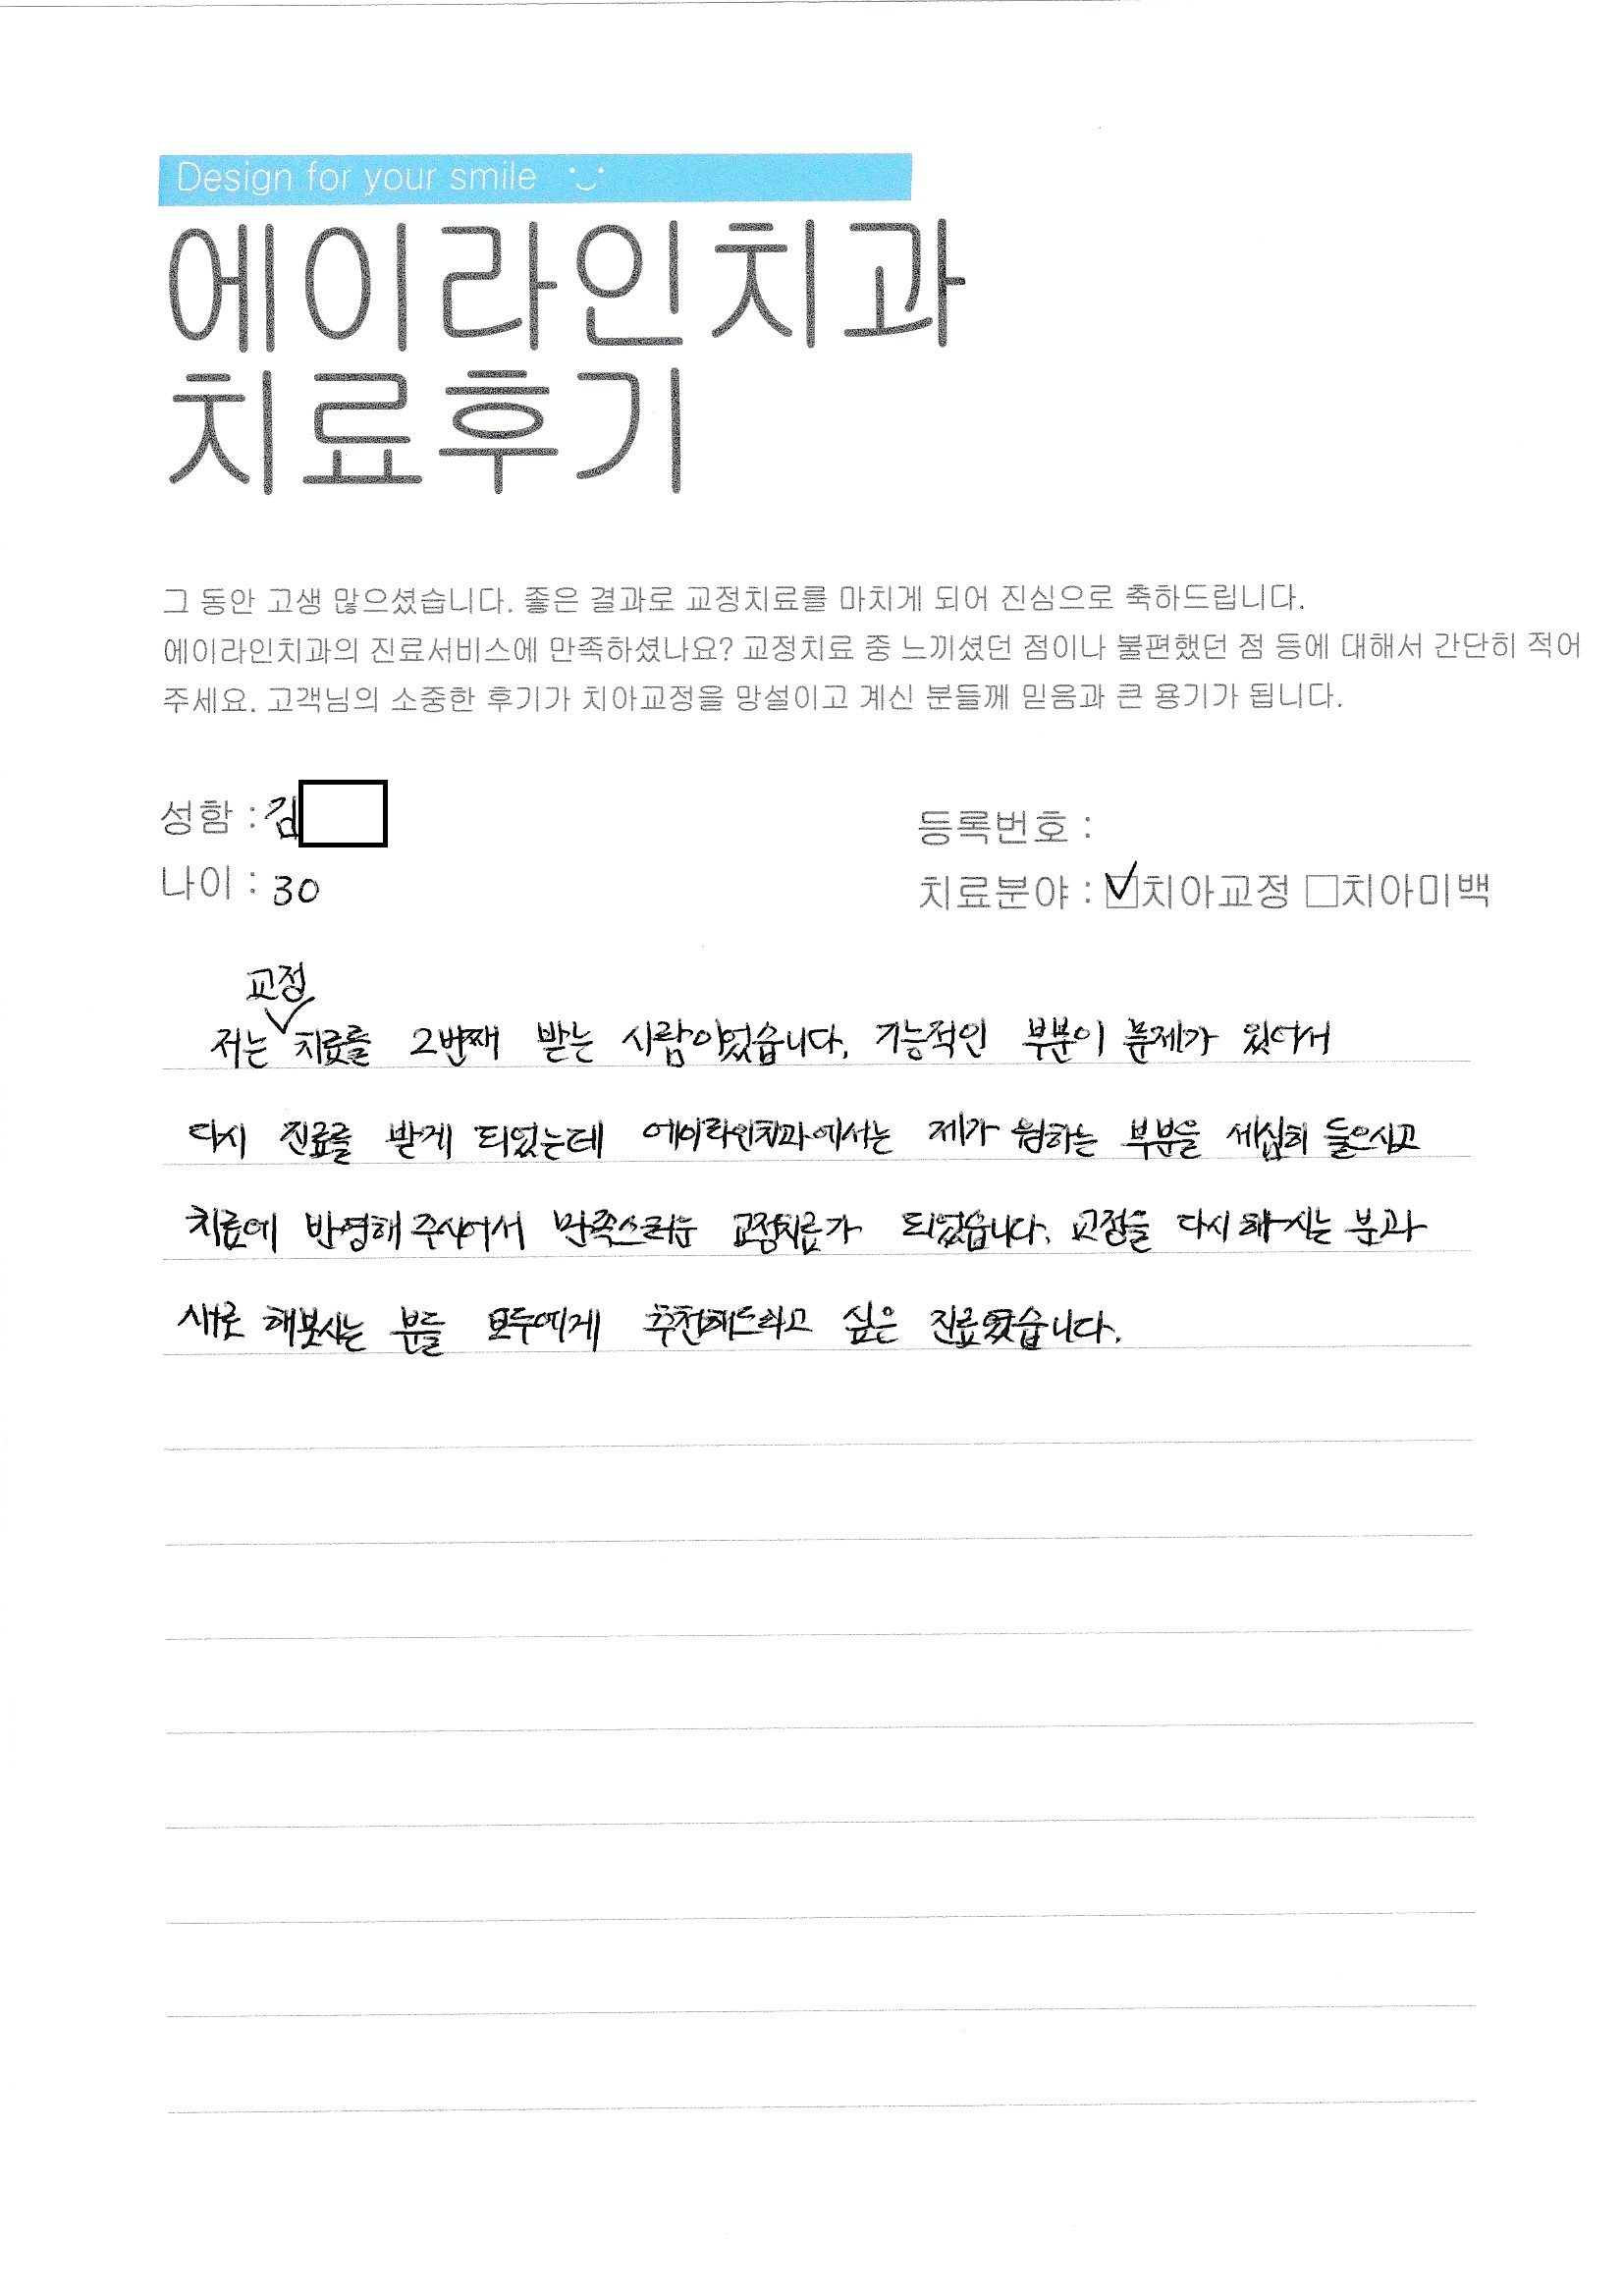 Design for your smile
에이라인치과
치료후기
그 동안 고생 많으셨습니다. 좋은 결과로 교정치료를 마치게 되어 진심으로 축하드립니다.
에이라인치과의 진료서비스에 만족하셨나요? 교정치료 중 느끼셨던 점이나 불편했던 점 등에 대해서 간단히 적어
주세요. 고객님의 소중한 후기가 치아교정을 망설이고 계신 분들께 믿음과 큰 용기가 됩니다.
성함 : 김
등록번호 :
나이 : 30
치료분야 : ☑치아교정 □치아미백
교정
저는 치료를 2번째 받는 사람이었습니다. 기능적인 부분이 문제가 있어서
다시 진료를 받게 되었는데 에이라인치과에서는 제가 원하는 부분을 세심히 들으시고
치료에 반영해 주시어서 만족스러운 교정치료가 되었습니다. 교정을 다시 하시는 분과
새로 해보시는 분들 모두에게 추천해드리고 싶은 진료였습니다.